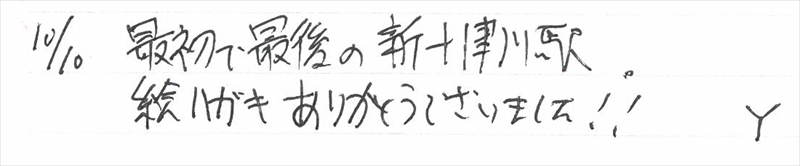 10/10 最初で最後の新十津川駅
絵ハガキありがとうございました!! Y